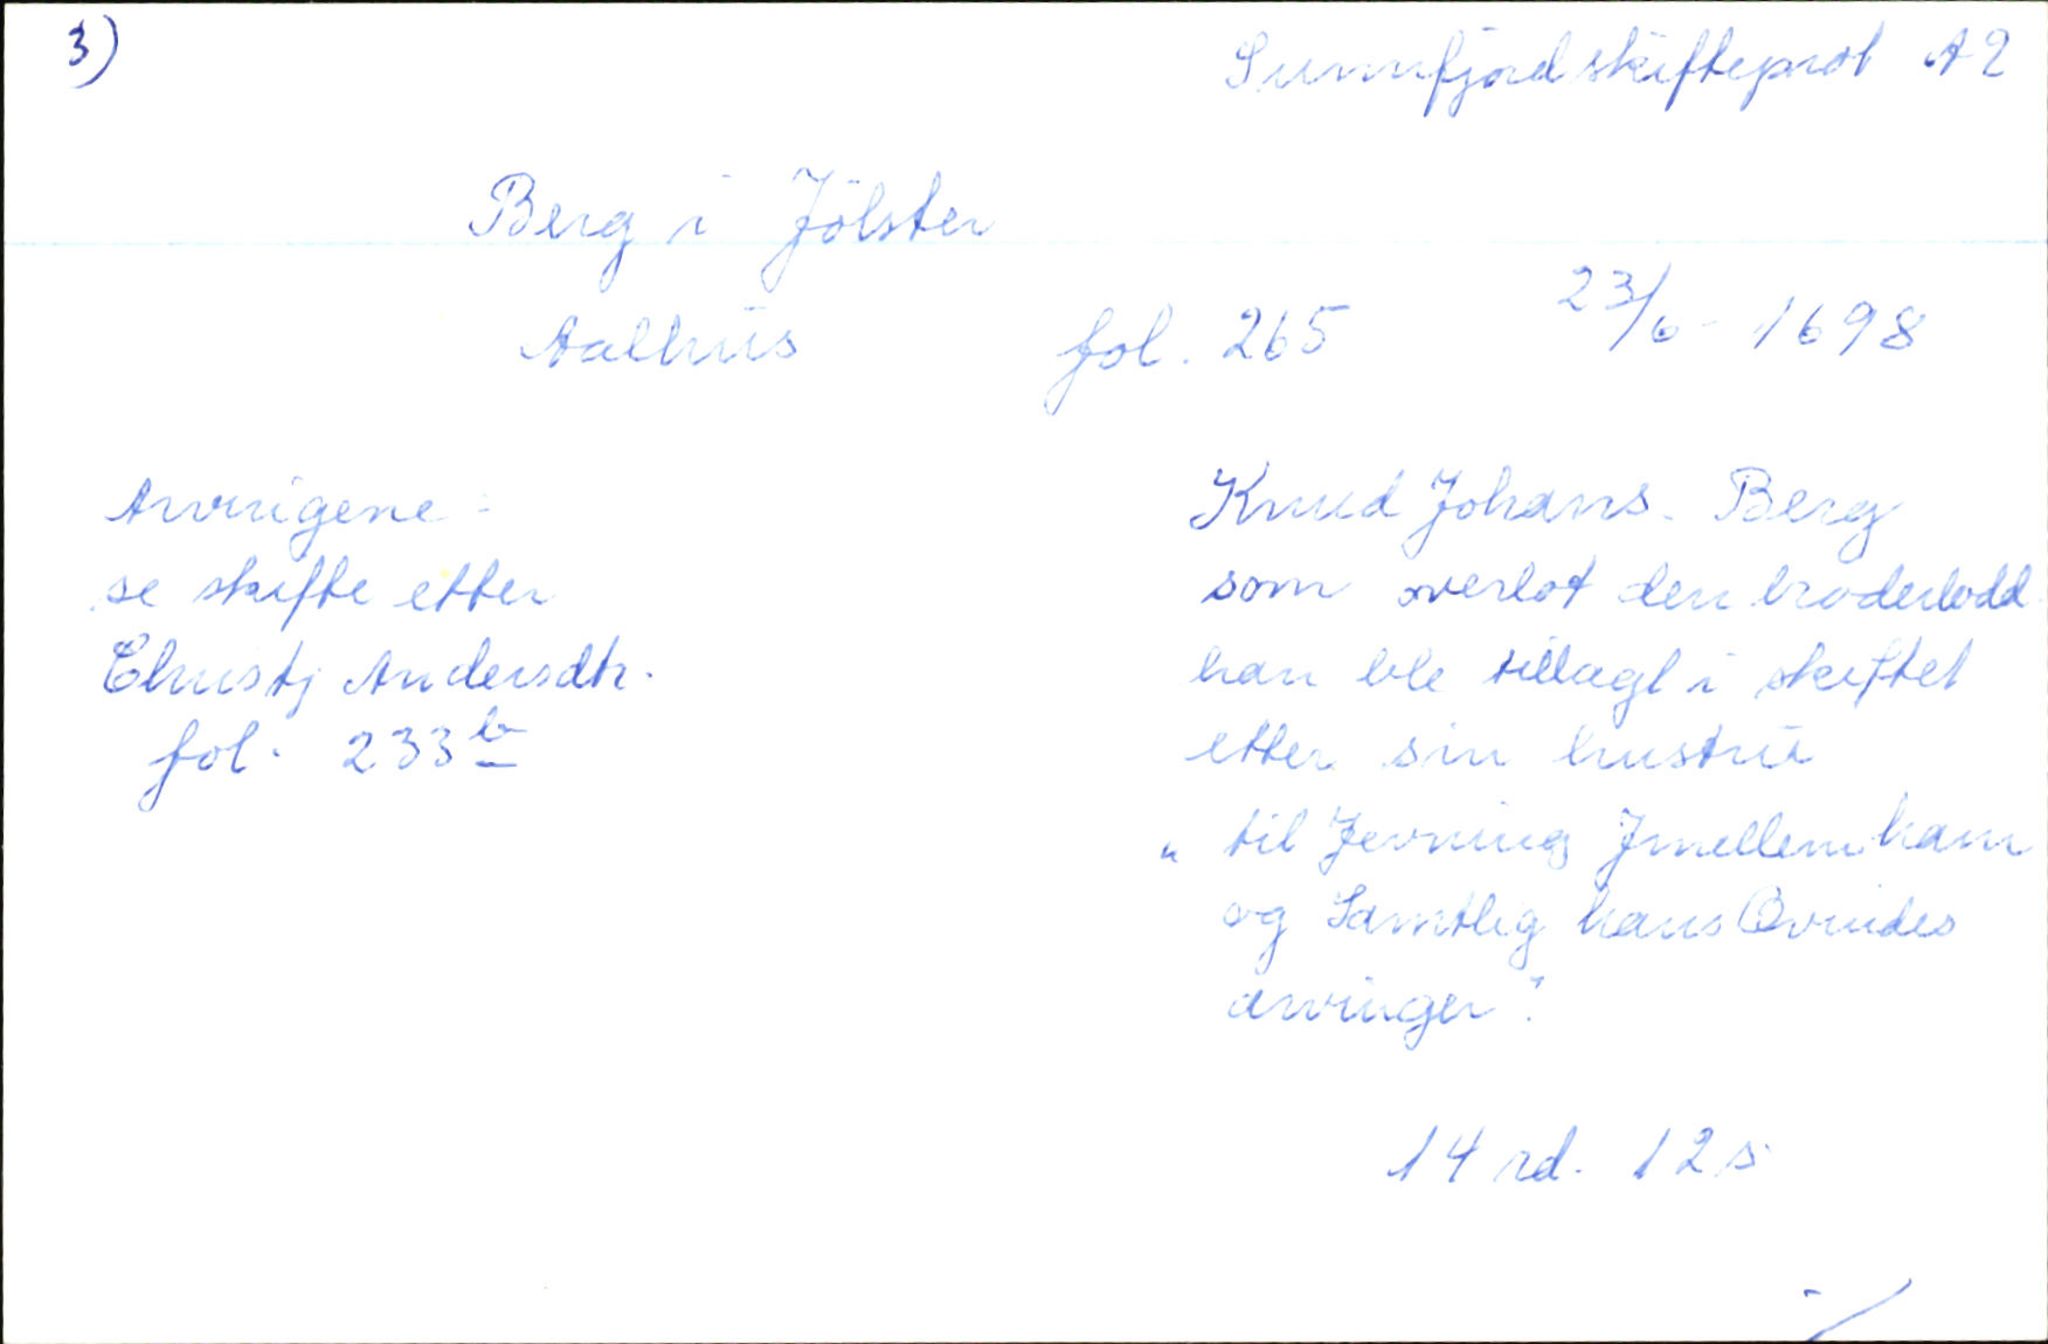 3) Sunnfjord skifteprot A 2
Berg i Jölster
Aalhus fol. 265 23/6 - 1698
Arvingene:
se skifte etter
Christj Andersdtr.
fol. 233 b
Knud Johans. Berg
som overlot den broderlodd
han ble tillagt i skiftet
etter sin hustru
"til Jevning Jmellem ham
og Samtlig hans Qvindes
arvinger".
14 rd. 12 s